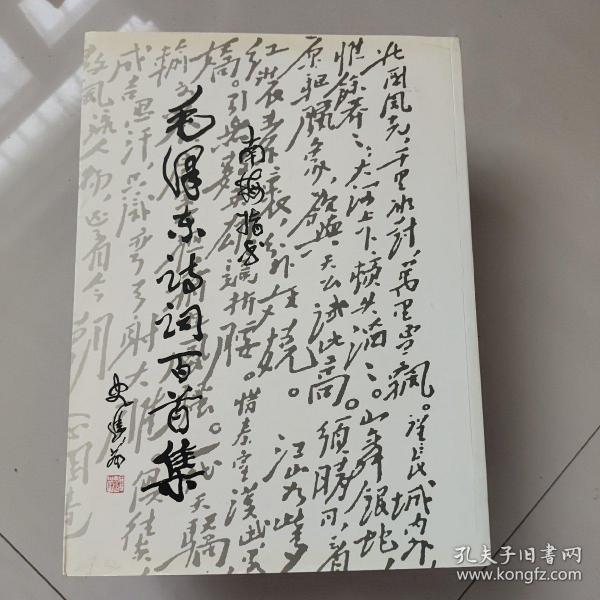 北国风光，千里冰封，万里雪飘。望长城内外，
惟餘莽莽；大河上下，顿失滔滔。山舞银蛇，
原驰腊象，欲与天公试比高。须晴日，看
红装素裹，分外妖娆。江山如此多
娇。引无数英雄竞折腰。惜秦皇汉武，
南梅指书
毛泽东诗词百首集
成吉思汗，只识弯弓射大雕。俱往矣，
数风流人物，还看今朝
孔夫子旧书网
www.kongfz.com